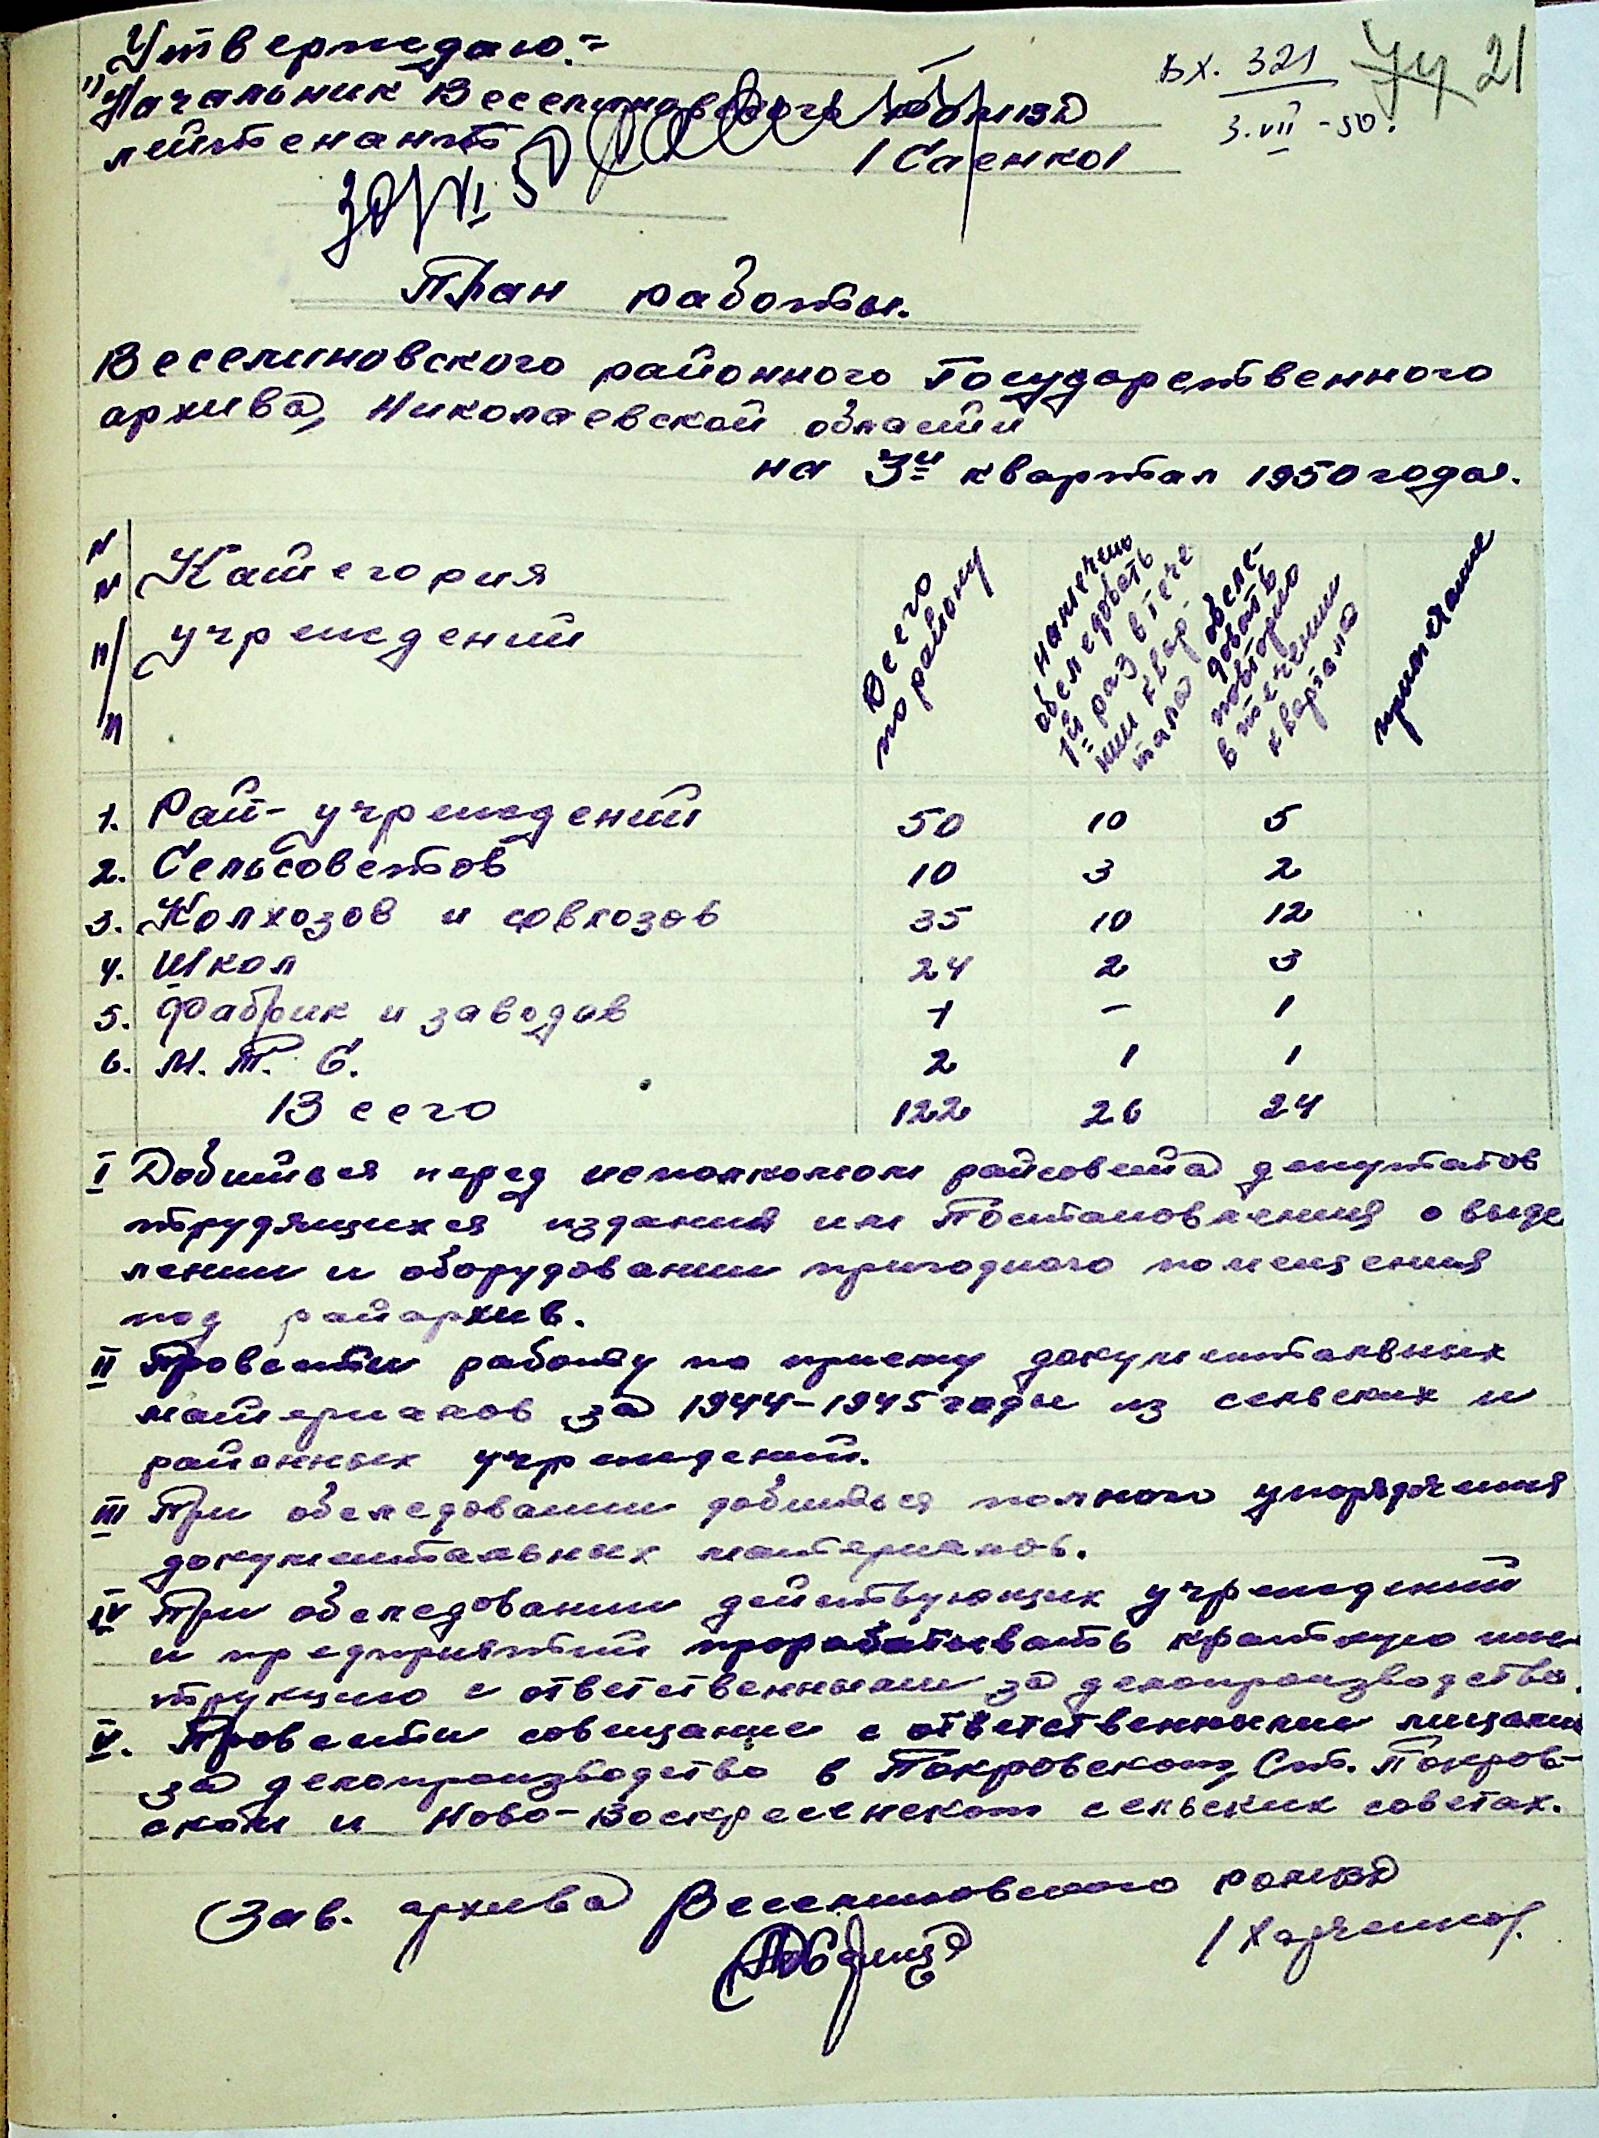 Утверждаю:=
Вх. 321
3.VII-50.
21
"Начальник Веселиновского РОМВД
лейтенант /Саенко/
30/VI 50
План работы.
Веселиновского районного Государственного
архива, Николаевской области
на 3й квартал 1950 года.
№ № п/п
Категория
учреждений
Всего
по району
намечено
обследовать
1й раз в тече
нии квар
тала
обсле-
довать
повторно
в течении
квартала
примечание
1. Рай-учреждений 50 10 5
2. Сельсоветов 10 3 2
3. Колхозов и совхозов 35 10 12
4. Школ 24 2 3
5. Фабрик и заводов 1 – 1
6. М.Т.С. 2 1 1
Всего 122 26 24
I Добиться перед исполкомом райсовета депутатов
трудящихся издания им Постановления о выде
лении и оборудовании пригодного помещения
под райархив.
II Провести работу по приему документальных
материалов за 1944-1945 годы из сельских и
районных учреждений.
III При обследовании добиться полного упорядочения
документальных материалов.
IV При обследовании действующих учреждений
и предприятий прорабатывать краткую инс
трукцию с ответственными за делопроизводство.
V. Провести совещание с ответственными лицами
за делопроизводство в Покровском, Ст. Покров-
ском и Ново-Воскресенском сельских советах.
Зав. архива Веселиновского РОМВД
/Харченко/.